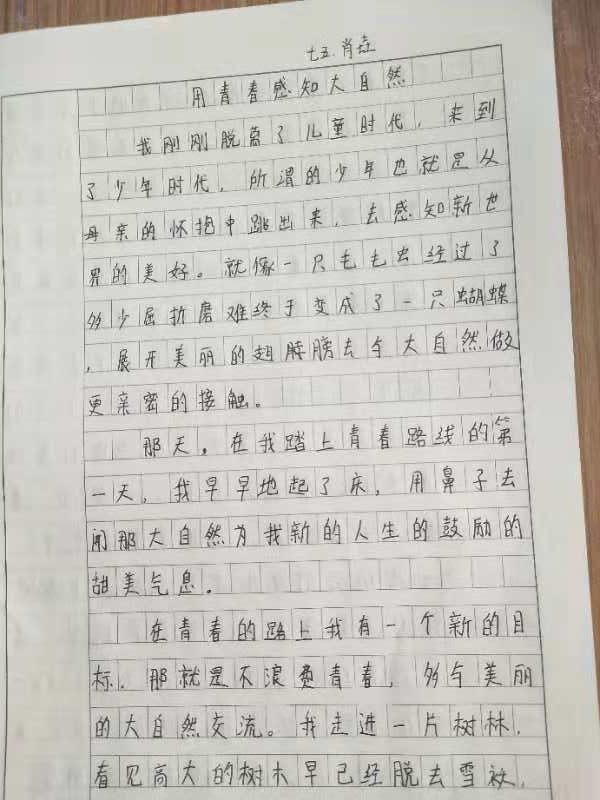 七五 肖垚
用青春感知大自然
我刚刚脱离了儿童时代，来到
了少年时代，所谓的少年也就是从
母亲的怀抱中跳出来，去感知新世
界的美好。就像一只毛毛虫经过了
多少屈折磨难终于变成了一只蝴蝶
，展开美丽的翅膀去与大自然做
更亲密的接触。
那天，在我踏上青春路线的第
一天，我早早地起了床，用鼻子去
闻那大自然为我新的人生的鼓励的
甜美气息。
在青春的路上我有一个新的目
标，那就是不浪费青春，多与美丽
的大自然交流。我走进一片树林，
看见高大的树木早已经脱去雪袄，